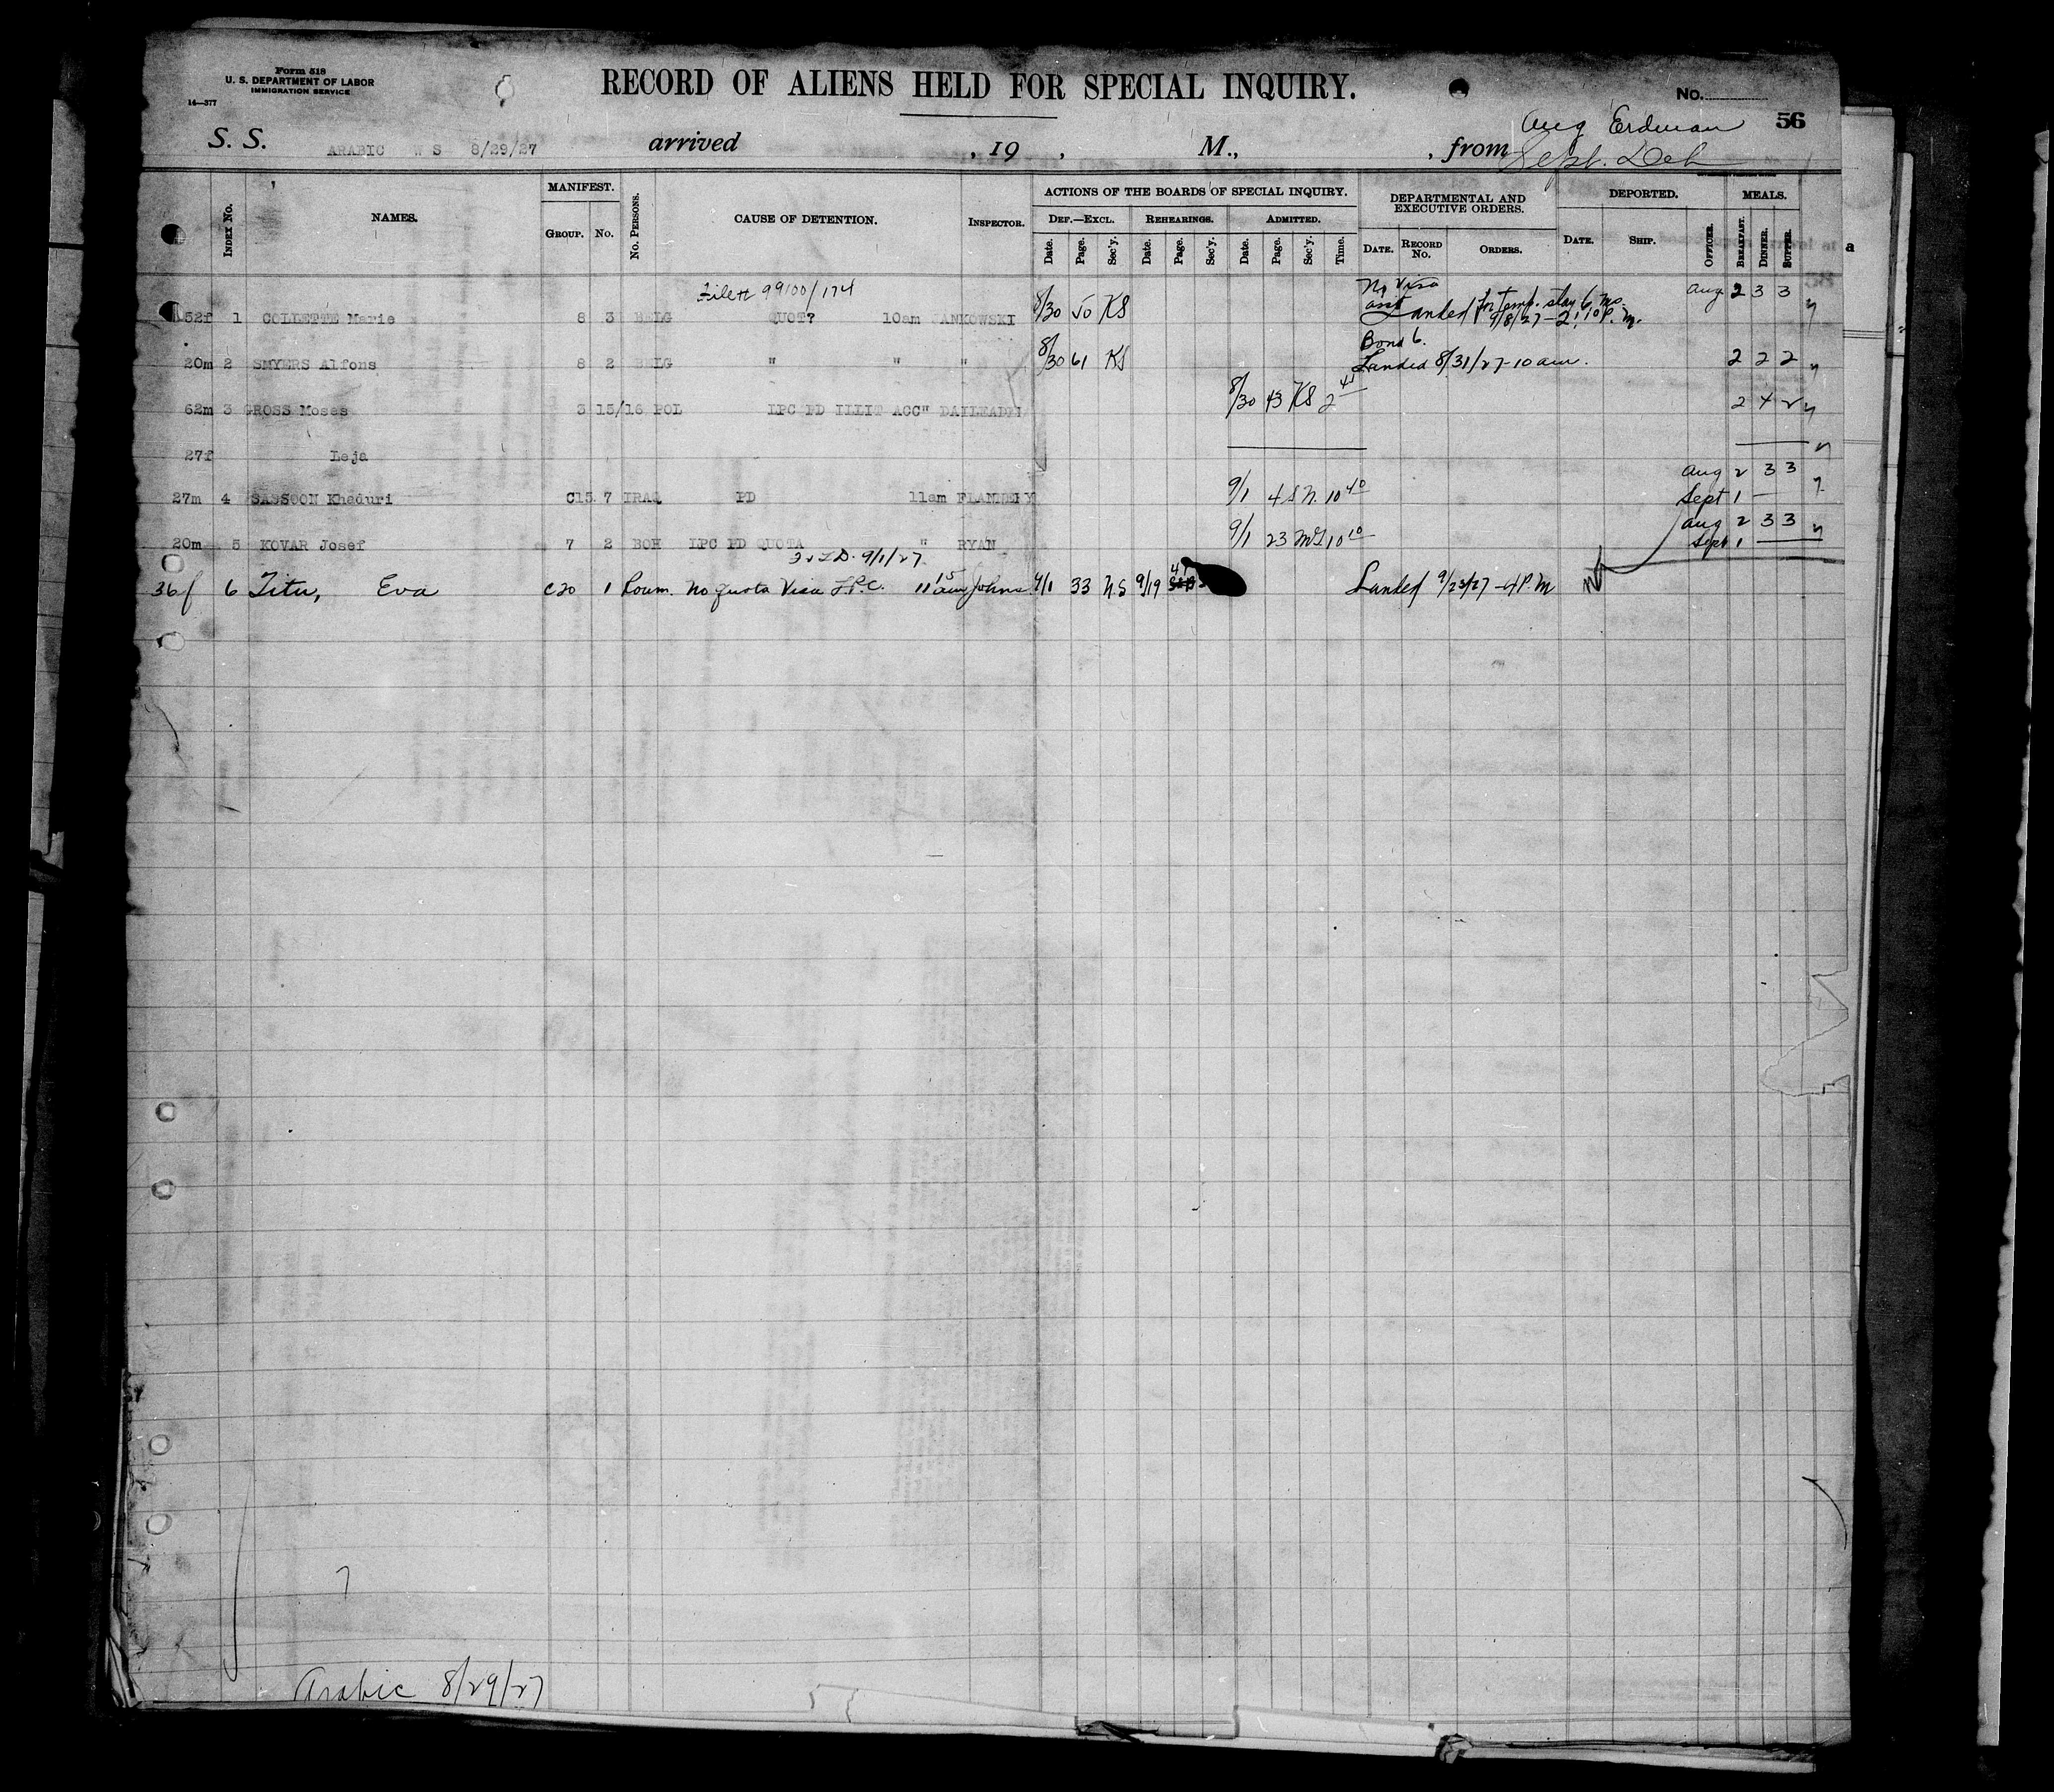 Form 518
U. S. DEPARTMENT OF LABOR
IMMIGRATION SERVICE
14—377
RECORD OF ALIENS HELD FOR SPECIAL INQUIRY.
No.
56
Aug Erdman
S. S. ARABIC W S 8/29/27 arrived , 19 , M., , from Sept.
INDEX No. NAMES. MANIFEST. GROUP. No. No. PERSONS. CAUSE OF DETENTION. INSPECTOR. ACTIONS OF THE BOARDS OF SPECIAL INQUIRY. DEF.—EXCL. Date. Page. Sec'y. REHEARINGS. Date. Page. Sec'y. ADMITTED. Date. Page. Sec'y. Time. DEPARTMENTAL AND EXECUTIVE ORDERS. DATE. RECORD No. ORDERS. DEPORTED. DATE. SHIP. OFFICER. MEALS. BREAKFAST. DINNER. SUPPER.
File # 99100/174 No Visa
52f 1 COLLETTE Marie 8 3 BELG QUOT? 10am JANKOWSKI 8/30 50 KS Landed for temp. stay 6 mo. 9/8/27 - 2:10 P.m. Aug 2 3 3
Bond 6.
20m 2 SMYERS Alfons 8 2 BELG " " " 8/30 61 KS Landed 8/31/27 - 10 am. 2 2 2
62m 3 GROSS Moses 3 15/16 POL LPC PD ILLIT ACC" 8/30 43 KS 2 45 2
27f Leja
Aug 2 3 3
27m 4 SASSOON Khaduri C15 7 IRAQ PD 11am FLANNERY 9/1 4 S N. 10 40 Sept 1 —
Aug 2 3 3
20m 5 KOVAR Josef 7 2 BOH LPC PD QUOTA " RYAN 9/1 23 10 10 Sept 1
9/1/27
36f 6 Titu, Eva C20 1 Roum. No quota Visa L.P.C. 11 15 am Johns 9/1 33 N.S 9/19 Landed 9/23/27 - 4 P.M
Arabic 8/29/27